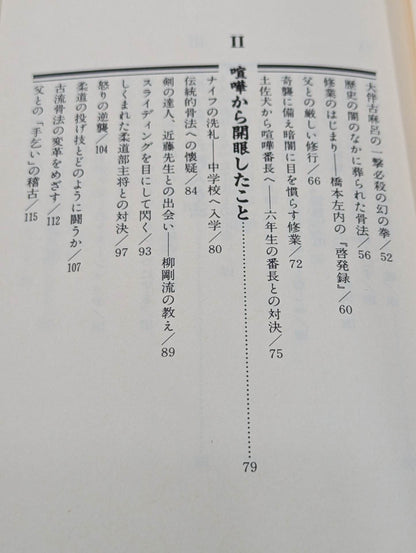 大伴古麻呂の一撃必殺の幻の拳/52
歴史の闇のなかに葬られた骨法/56
修業のはじまり——橋本左内の『啓発録』/60
父との厳しい修行/66
奇襲に備え暗闇に目を慣らす修業/72
土佐犬から喧嘩番長へ——六年生の番長との対決/75
II 喧嘩から開眼したこと……………………79
ナイフの洗礼 中学校へ入学/80
伝統的骨法への懐疑/84
剣の達人、近藤先生との出会い——柳剛流の教え/89
スライディングを目にして閃く/93
しくまれた柔道部主将との対決/97
怒りの逆襲/104
柔道の投げ技とどのように闘うか/107
古流骨法の変革をめざす/112
父との「手乞い」の稽古/115